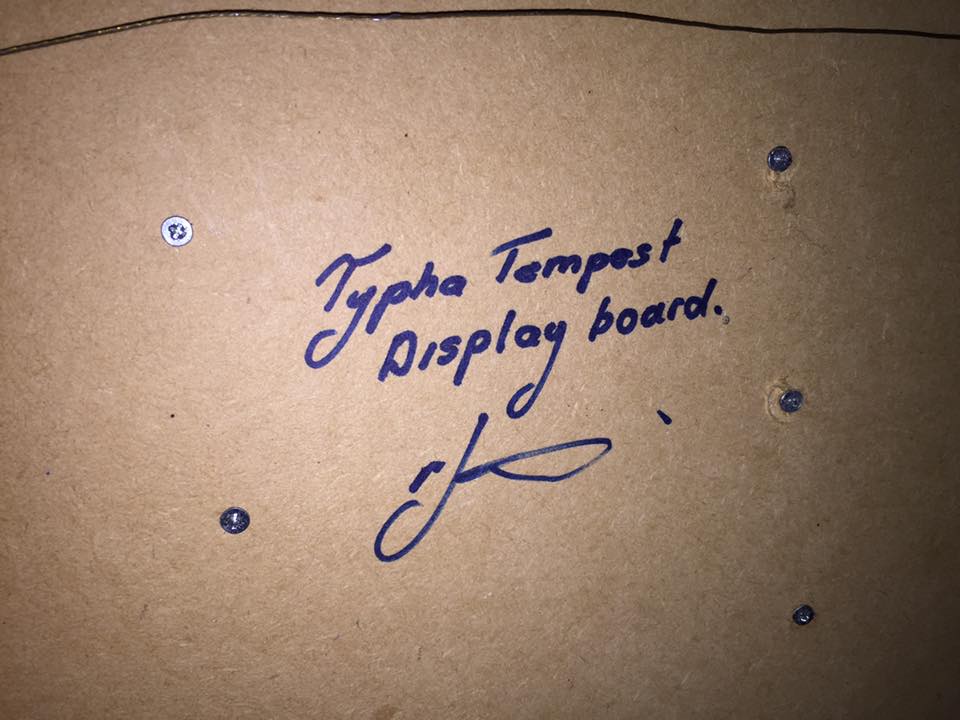 Typha Tempest
Display board.